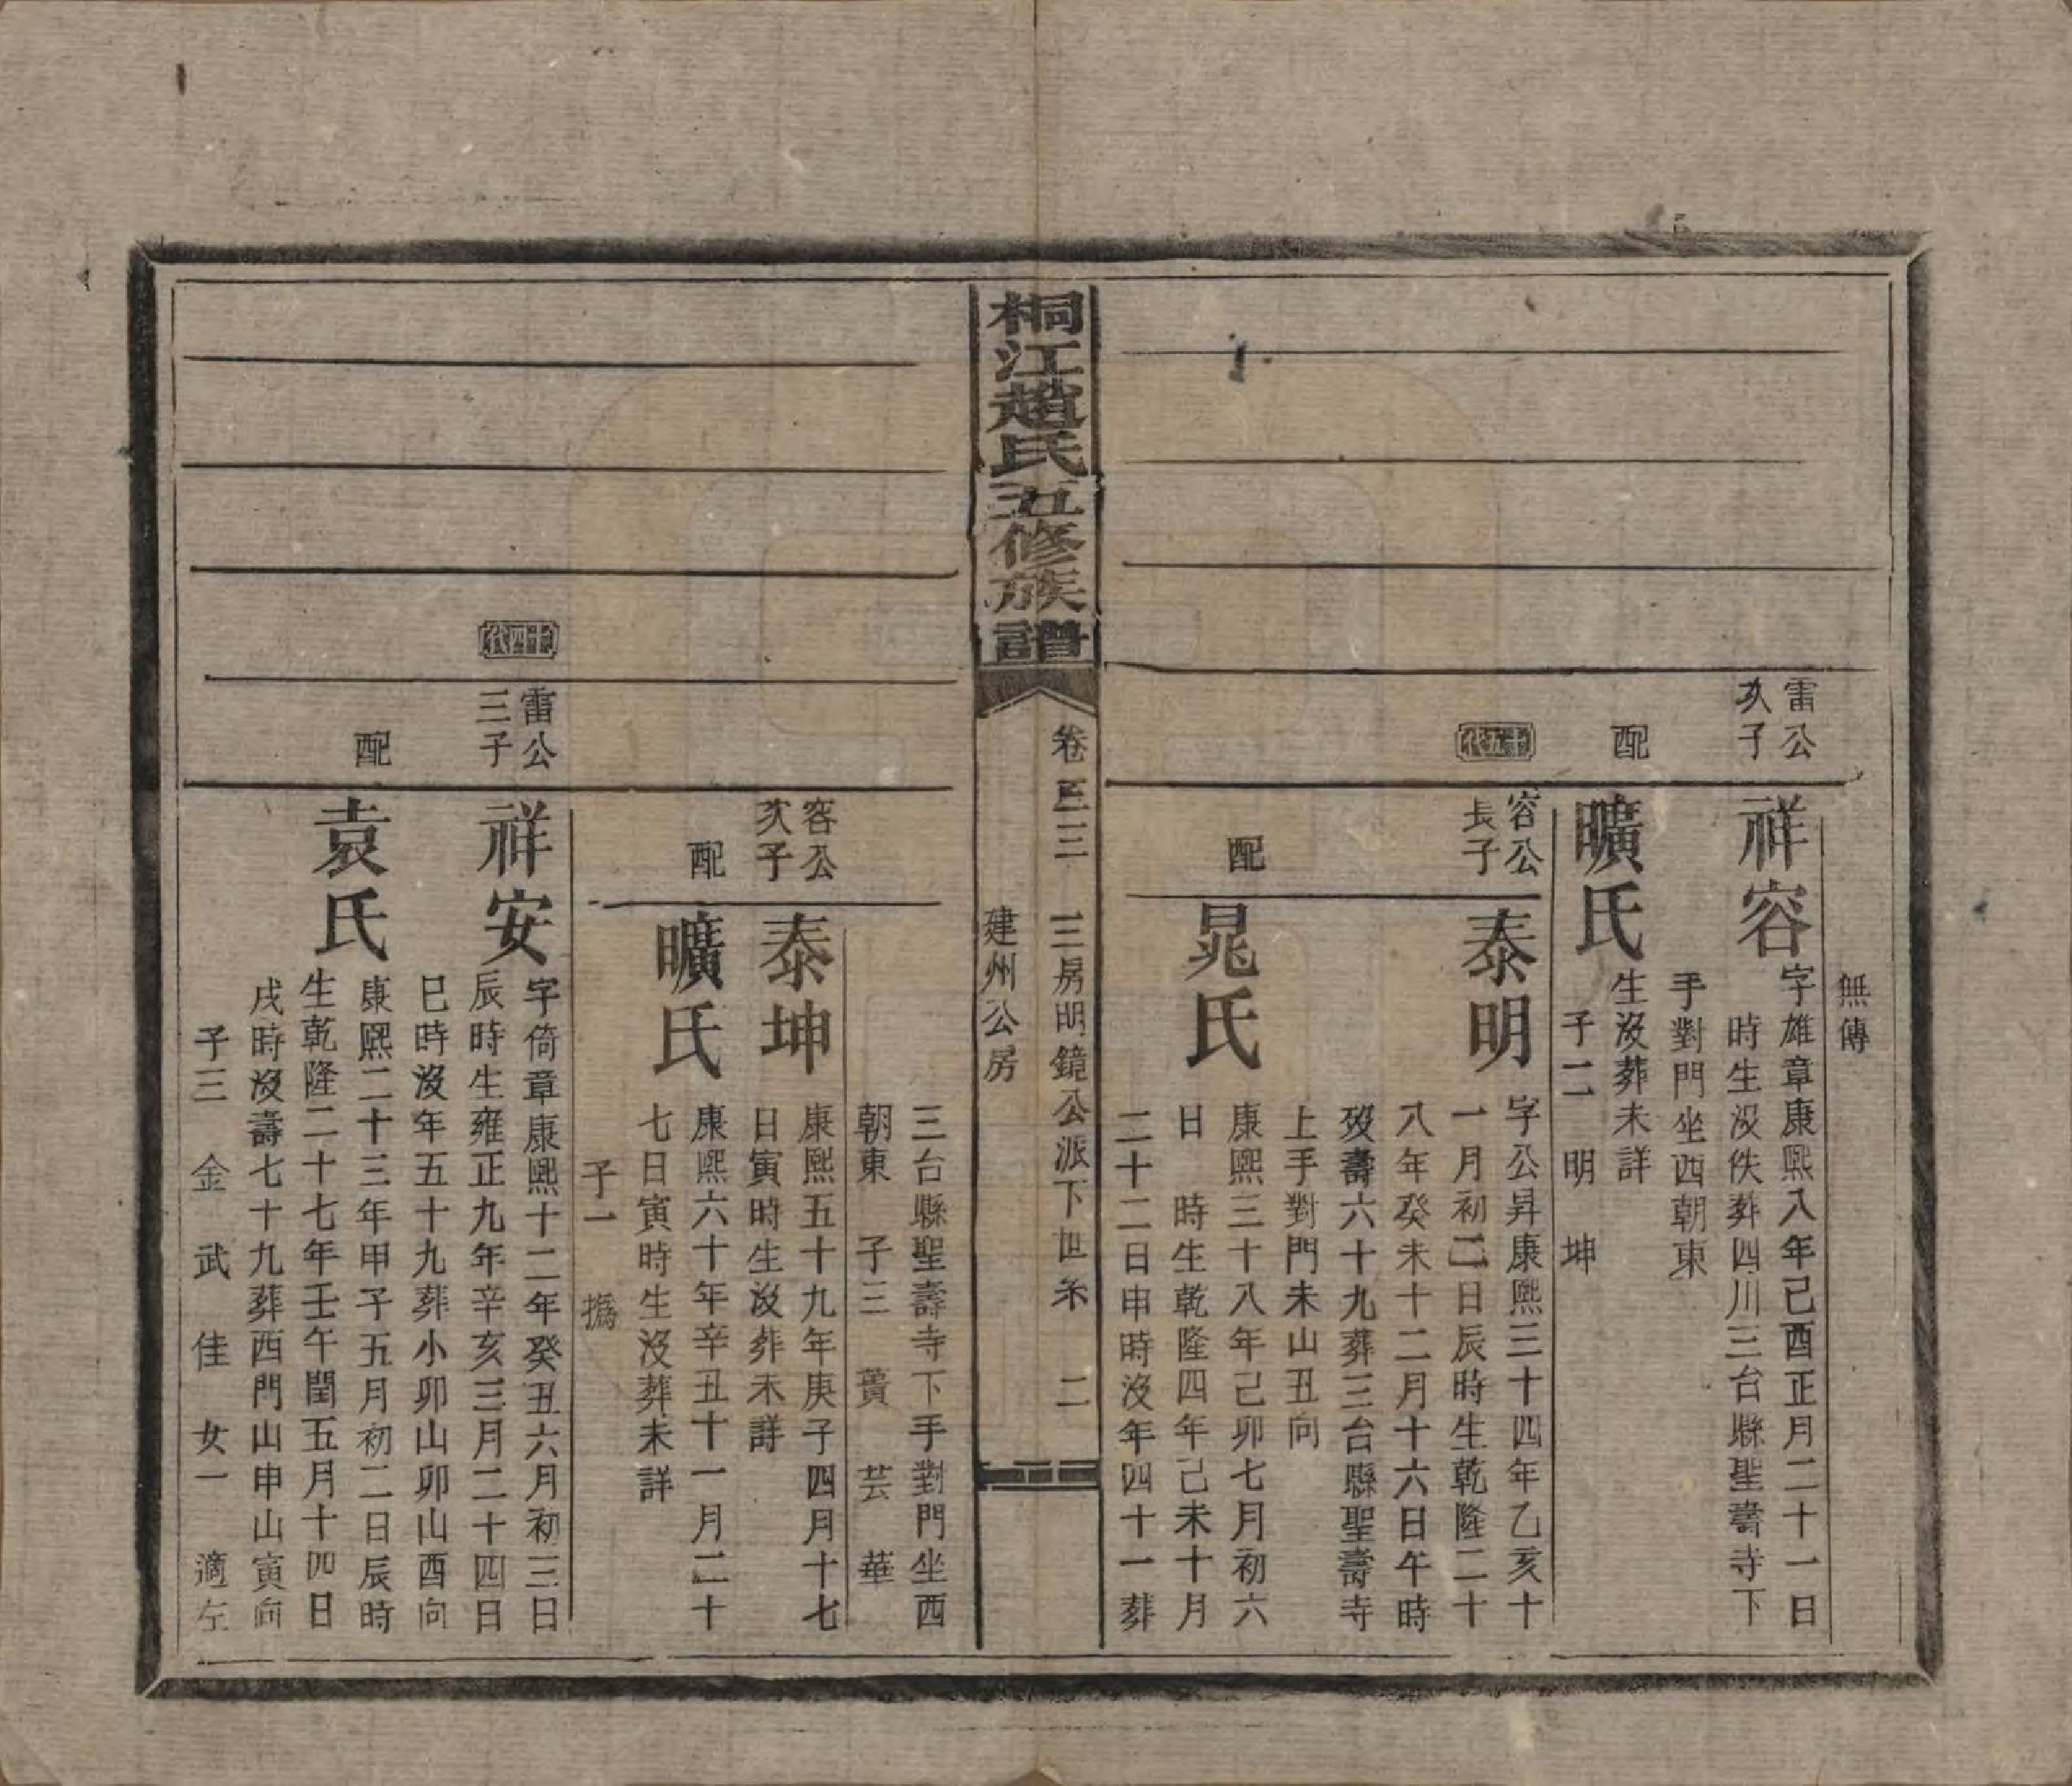 無傳
雷公
次子
祥容
字雄章康熙八年己酉正月二十一日
時生沒佚葬四川三台縣聖壽寺下
手對門坐西朝東
配
曠氏
生沒葬未詳
子二　明　坤
十五代
容公
長子
泰明
字公昇康熙三十四年乙亥十
一月初二日辰時生乾隆二十
八年癸未十二月十六日午時
歿壽六十九葬三台縣聖壽寺
上手對門未山丑向
配
晁氏
康熙三十八年己卯七月初六
日　時生乾隆四年己未十月
二十二日申時沒年四十一葬
桐江趙氏五修族譜
卷三三　三房明鏡公派下世系　二
建州公房
三台縣聖壽寺下手對門坐西
朝東　子三　蕢　芸　華
容公
次子
泰坤
康熙五十九年庚子四月十七
日寅時生沒葬未詳
配
曠氏
康熙六十年辛丑十一月二十
七日寅時生沒葬未詳
子一　撝
十四代
雷公
三子
祥安
字倚章康熙十二年癸丑六月初三日
辰時生雍正九年辛亥三月二十四日
巳時沒年五十九葬小卯山卯山酉向
配
袁氏
康熙二十三年甲子五月初二日辰時
生乾隆二十七年壬午閏五月十四日
戌時沒壽七十九葬西門山申山寅向
子三　金　武　佳　女一　適左